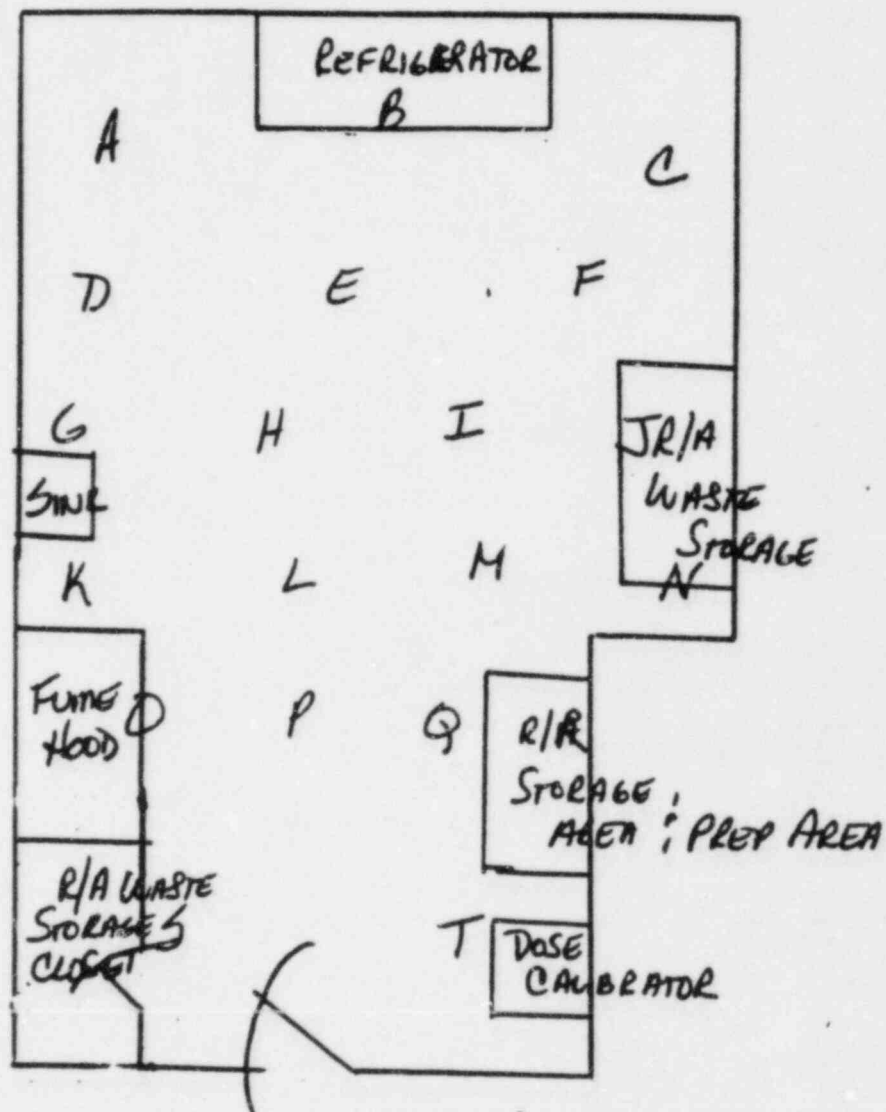 REFRIGERATOR
B
A
C
D
E
F
G
H
I
J R/A
WASTE
STORAGE
N
SINK
K
L
M
FUME
HOOD
O
P
Q
STORAGE
AREA & PREP AREA
R/A WASTE
STORAGE S
CLOSET
T
DOSE
CALIBRATOR